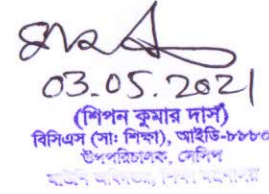 03.05.2021
(শিপন কুমার দাস)
বিসিএস (সাঃ শিক্ষা), আইডি-৮৮৮০
উপপরিচালক, সেসিপ